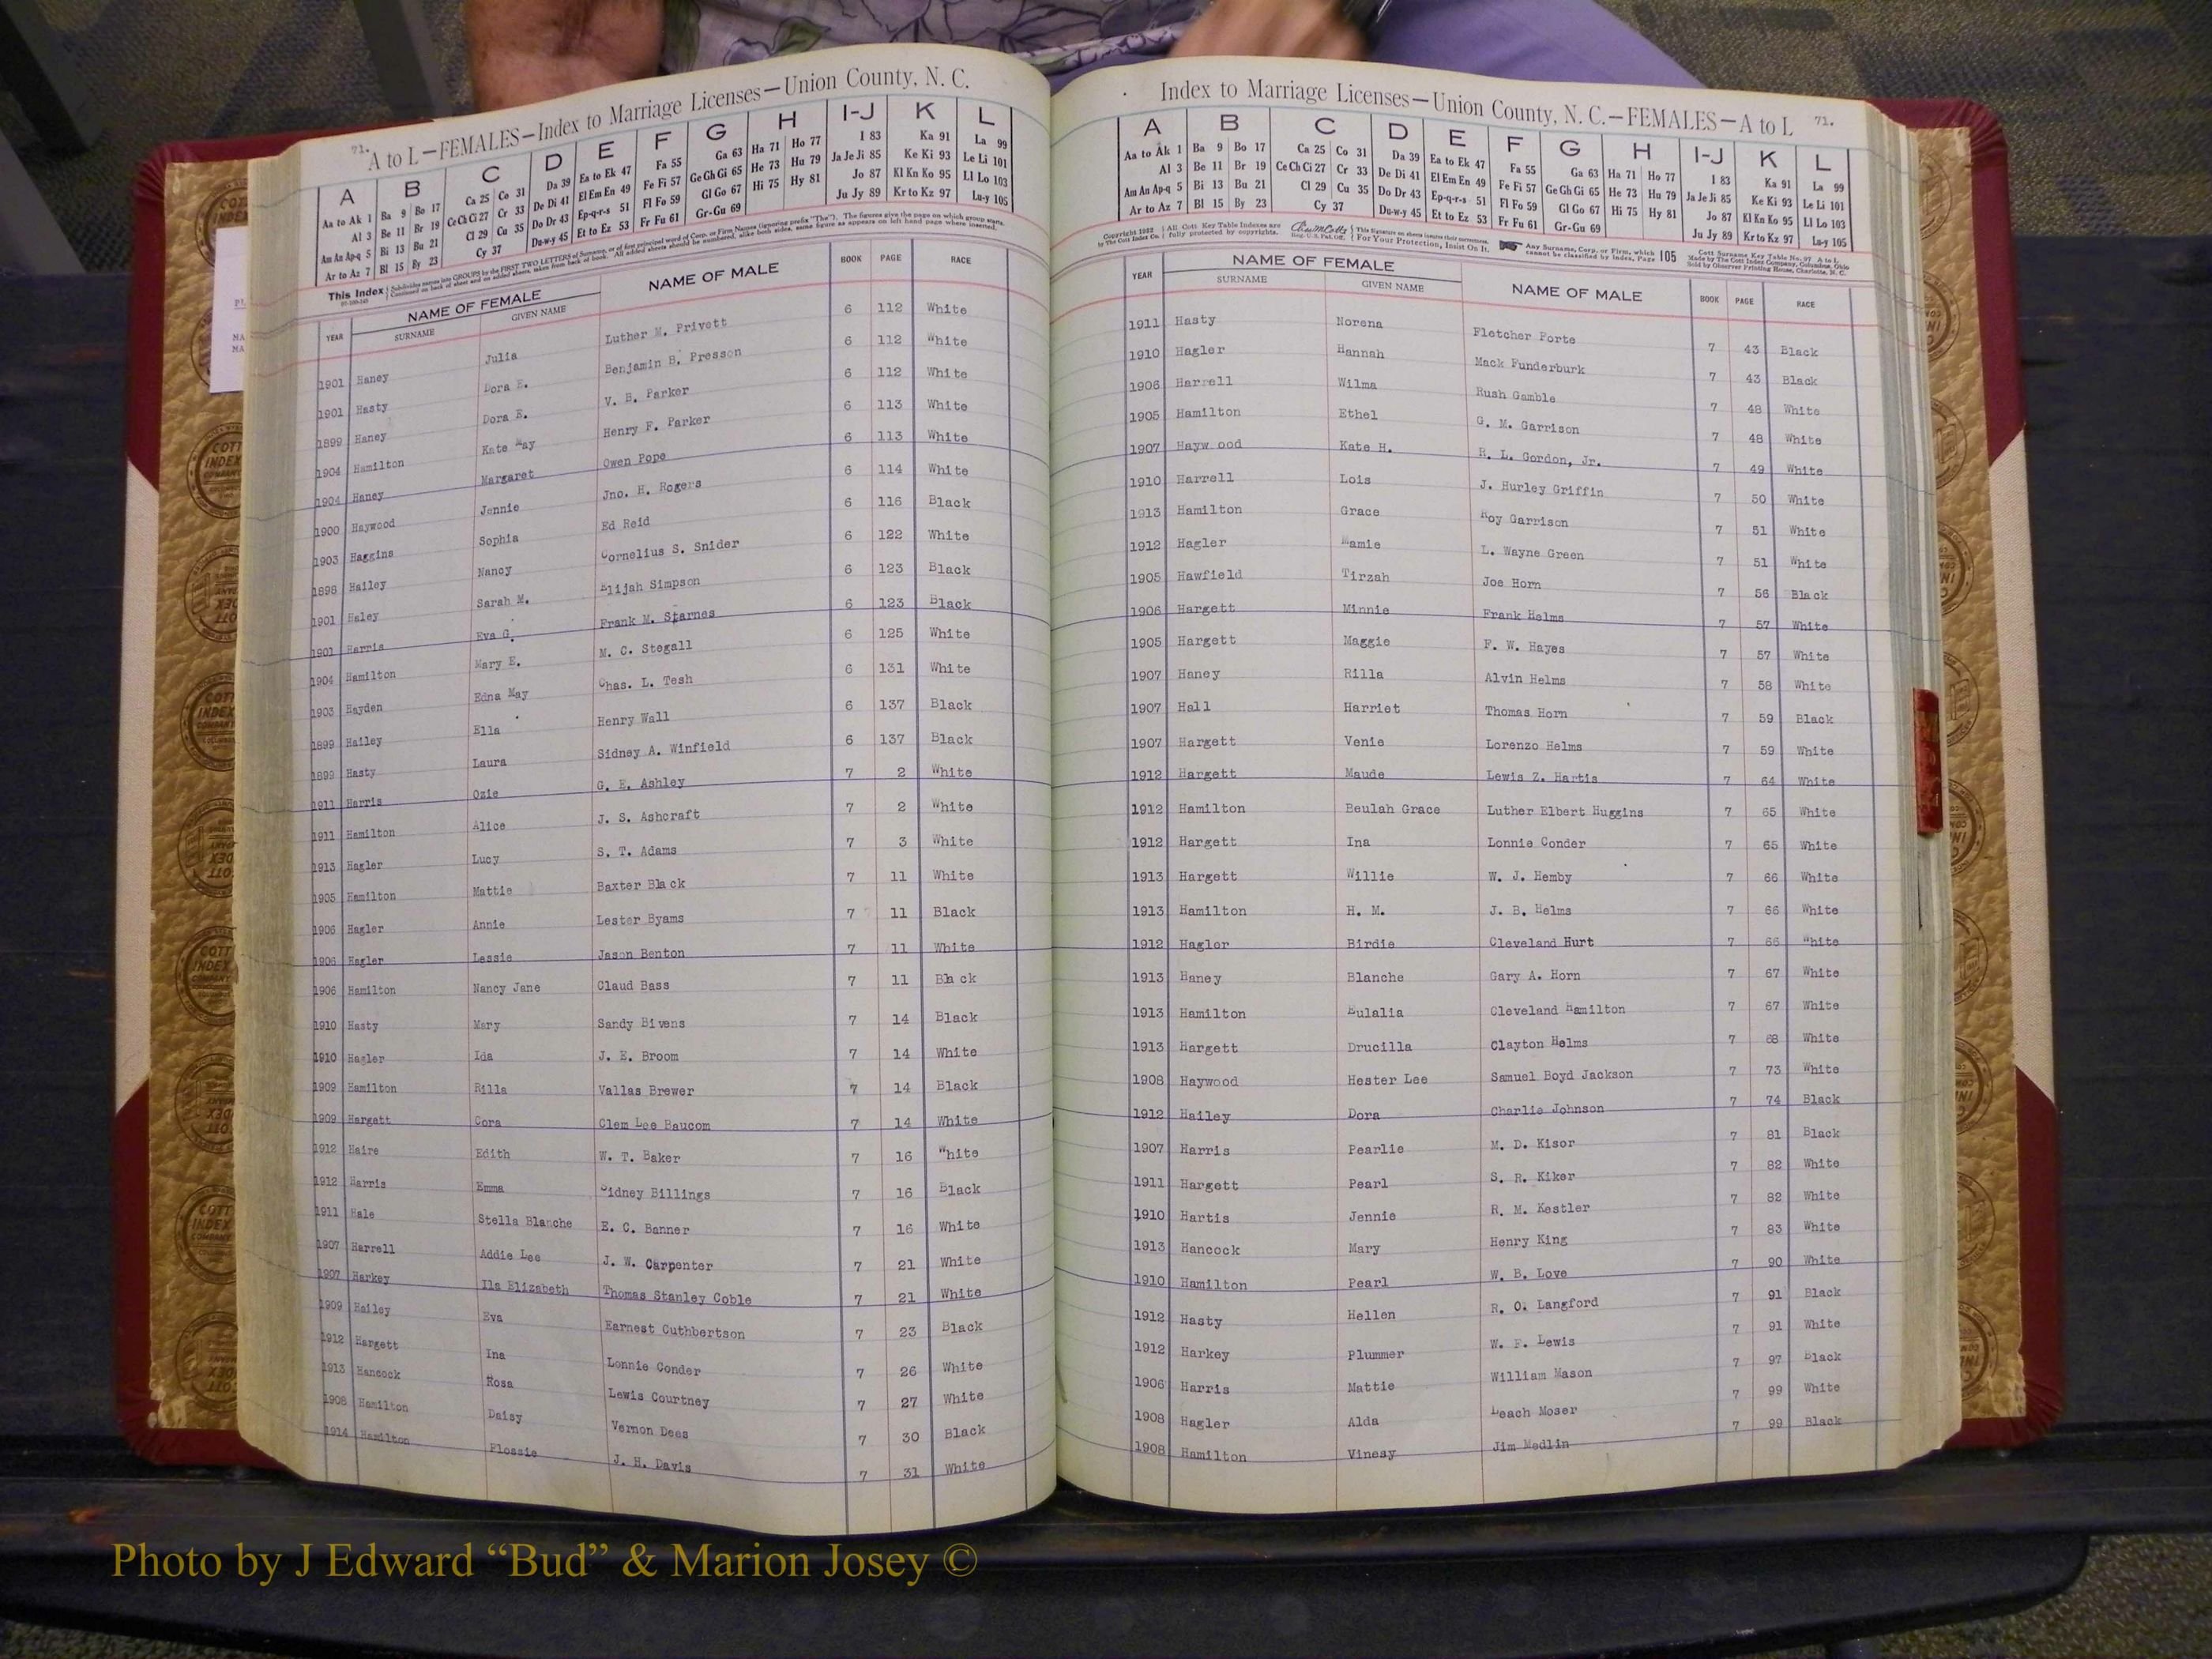 71. A to L—FEMALES—Index to Marriage Licenses—Union County, N. C.
A B C D E F G H I-J K L
Aa to Ak 1 Ba 9 Bo 17 Ca 25 Co 31 Da 39 Ea to Ek 47 Fa 55 Ga 63 Ha 71 Ho 77 I 83 Ka 91 La 99
Al 3 Be 11 Br 19 Ce Ch Ci 27 Cr 33 De Di 41 El Em En 49 Fe Fi 57 Ge Gh Gi 65 He 73 Hu 79 Ja Je Ji 85 Ke Ki 93 Le Li 101
Am An Ap-q 5 Bi 13 Bu 21 Cl 29 Cu 35 Do Dr 43 Ep-q-r-s 51 Fl Fo 59 Gl Go 67 Hi 75 Hy 81 Jo 87 Kl Kn Ko 95 Ll Lo 103
Ar to Az 7 Bl 15 By 23 Cy 37 Du-w-y 45 Et to Ez 53 Fr Fu 61 Gr-Gu 69 Ju Jy 89 Kr to Kz 97 Lu-y 105
This Index Subdivides names into GROUPS by the FIRST TWO LETTERS of Surname, or of first principal word of Corp. or Firm Names (ignoring prefix "The"). The figures give the page on which group starts.
Continued on back of sheet and on added sheets, taken from back of book. All added sheets should be numbered, alike both sides, same figure as appears on left hand page where inserted.
YEAR NAME OF FEMALE NAME OF MALE BOOK PAGE RACE
SURNAME GIVEN NAME
1901 Haney Julia Luther M. Privett 6 112 White
1901 Hasty Dora E. Benjamin B. Presson 6 112 White
1899 Haney Dora E. V. B. Parker 6 112 White
1904 Hamilton Kate May Henry F. Parker 6 113 White
1904 Haney Margaret Owen Pope 6 113 White
1900 Haywood Jennie Jno. H. Rogers 6 114 White
1903 Haggins Sophia Ed Reid 6 116 Black
1898 Hailey Nancy Cornelius S. Snider 6 122 White
1901 Haley Sarah M. Elijah Simpson 6 123 Black
1901 Harris Eva G. Frank M. Starnes 6 123 Black
1904 Hamilton Mary E. M. C. Stegall 6 125 White
1903 Hayden Edna May Chas. L. Tesh 6 131 White
1899 Hailey Ella Henry Wall 6 137 Black
1899 Hasty Laura Sidney A. Winfield 6 137 Black
1911 Harris Ozie G. E. Ashley 7 2 White
1911 Hamilton Alice J. S. Ashcraft 7 2 White
1913 Hagler Lucy S. T. Adams 7 3 White
1905 Hamilton Mattie Baxter Black 7 11 White
1906 Hagler Annie Lester Byams 7 11 Black
1906 Hagler Lessie Jason Benton 7 11 White
1906 Hamilton Nancy Jane Claud Bass 7 11 Black
1910 Hasty Mary Sandy Bivens 7 14 Black
1910 Hagler Ida J. E. Broom 7 14 White
1909 Hamilton Rilla Vallas Brewer 7 14 Black
1909 Hargett Cora Clem Lee Baucom 7 14 White
1912 Haire Edith W. T. Baker 7 16 White
1912 Harris Emma Sidney Billings 7 16 Black
1911 Hale Stella Blanche E. C. Banner 7 16 White
1907 Harrell Addie Lee J. W. Carpenter 7 21 White
1907 Harkey Ila Elizabeth Thomas Stanley Coble 7 21 White
1909 Hailey Eva Earnest Cuthbertson 7 23 Black
1912 Hargett Ina Lonnie Conder 7 26 White
1913 Hancock Rosa Lewis Courtney 7 27 White
1908 Hamilton Daisy Vernon Dees 7 30 Black
1914 Hamilton Flossie J. H. Davis 7 31 White
Index to Marriage Licenses—Union County, N. C.—FEMALES—A to L 71.
A B C D E F G H I-J K L
Aa to Ak 1 Ba 9 Bo 17 Ca 25 Co 31 Da 39 Ea to Ek 47 Fa 55 Ga 63 Ha 71 Ho 77 I 83 Ka 91 La 99
Al 3 Be 11 Br 19 Ce Ch Ci 27 Cr 33 De Di 41 El Em En 49 Fe Fi 57 Ge Gh Gi 65 He 73 Hu 79 Ja Je Ji 85 Ke Ki 93 Le Li 101
Am An Ap-q 5 Bi 13 Bu 21 Cl 29 Cu 35 Do Dr 43 Ep-q-r-s 51 Fl Fo 59 Gl Go 67 Hi 75 Hy 81 Jo 87 Kl Kn Ko 95 Ll Lo 103
Ar to Az 7 Bl 15 By 23 Cy 37 Du-w-y 45 Et to Ez 53 Fr Fu 61 Gr-Gu 69 Ju Jy 89 Kr to Kz 97 Lu-y 105
Copyright 1932 All Cott Key Table Indexes are This Signature on sheets insures their correctness. Any Surname, Corp. or Firm, which Cott Surname Key Table No. 97 A to L
by The Cott Index Co. fully protected by copyrights. Reg. U.S. Pat. Off. For Your Protection, Insist On It. cannot be classified by Index, Page 105 Made by The Cott Index Company, Columbus, Ohio
Sold by Observer Printing House, Charlotte, N. C.
YEAR NAME OF FEMALE NAME OF MALE BOOK PAGE RACE
SURNAME GIVEN NAME
1911 Hasty Norena Fletcher Forte 7 43 Black
1910 Hagler Hannah Mack Funderburk 7 43 Black
1906 Harrell Wilma Rush Gamble 7 48 White
1905 Hamilton Ethel G. M. Garrison 7 48 White
1907 Hayw ood Kate H. R. L. Gordon, Jr. 7 49 White
1910 Harrell Lois J. Hurley Griffin 7 50 White
1913 Hamilton Grace Roy Garrison 7 51 White
1912 Hagler Mamie L. Wayne Green 7 51 White
1905 Hawfield Tirzah Joe Horn 7 56 Black
1906 Hargett Minnie Frank Helms 7 57 White
1905 Hargett Maggie F. W. Hayes 7 57 White
1907 Haney Rilla Alvin Helms 7 58 White
1907 Hall Harriet Thomas Horn 7 59 Black
1907 Hargett Venie Lorenzo Helms 7 59 White
1912 Hargett Maude Lewis Z. Hartis 7 64 White
1912 Hamilton Beulah Grace Luther Elbert Huggins 7 65 White
1912 Hargett Ina Lonnie Conder 7 65 White
1913 Hargett Willie W. J. Hemby 7 66 White
1913 Hamilton H. M. J. B. Helms 7 66 White
1912 Hagler Birdie Cleveland Hurt 7 66 White
1913 Haney Blanche Gary A. Horn 7 67 White
1913 Hamilton Eulalia Cleveland Hamilton 7 67 White
1913 Hargett Drucilla Clayton Helms 7 68 White
1908 Haywood Hester Lee Samuel Boyd Jackson 7 73 White
1912 Hailey Dora Charlie Johnson 7 74 Black
1907 Harris Pearlie M. D. Kisor 7 81 Black
1911 Hargett Pearl S. R. Kiker 7 82 White
1910 Hartis Jennie R. M. Kestler 7 82 White
1913 Hancock Mary Henry King 7 83 White
1910 Hamilton Pearl W. B. Love 7 90 White
1912 Hasty Hellen R. O. Langford 7 91 Black
1912 Harkey Plummer W. F. Lewis 7 91 White
1906 Harris Mattie William Mason 7 97 Black
1908 Hagler Alda Leach Moser 7 99 White
1908 Hamilton Vinesy Jim Medlin 7 99 Black
Photo by J Edward “Bud” & Marion Josey ©